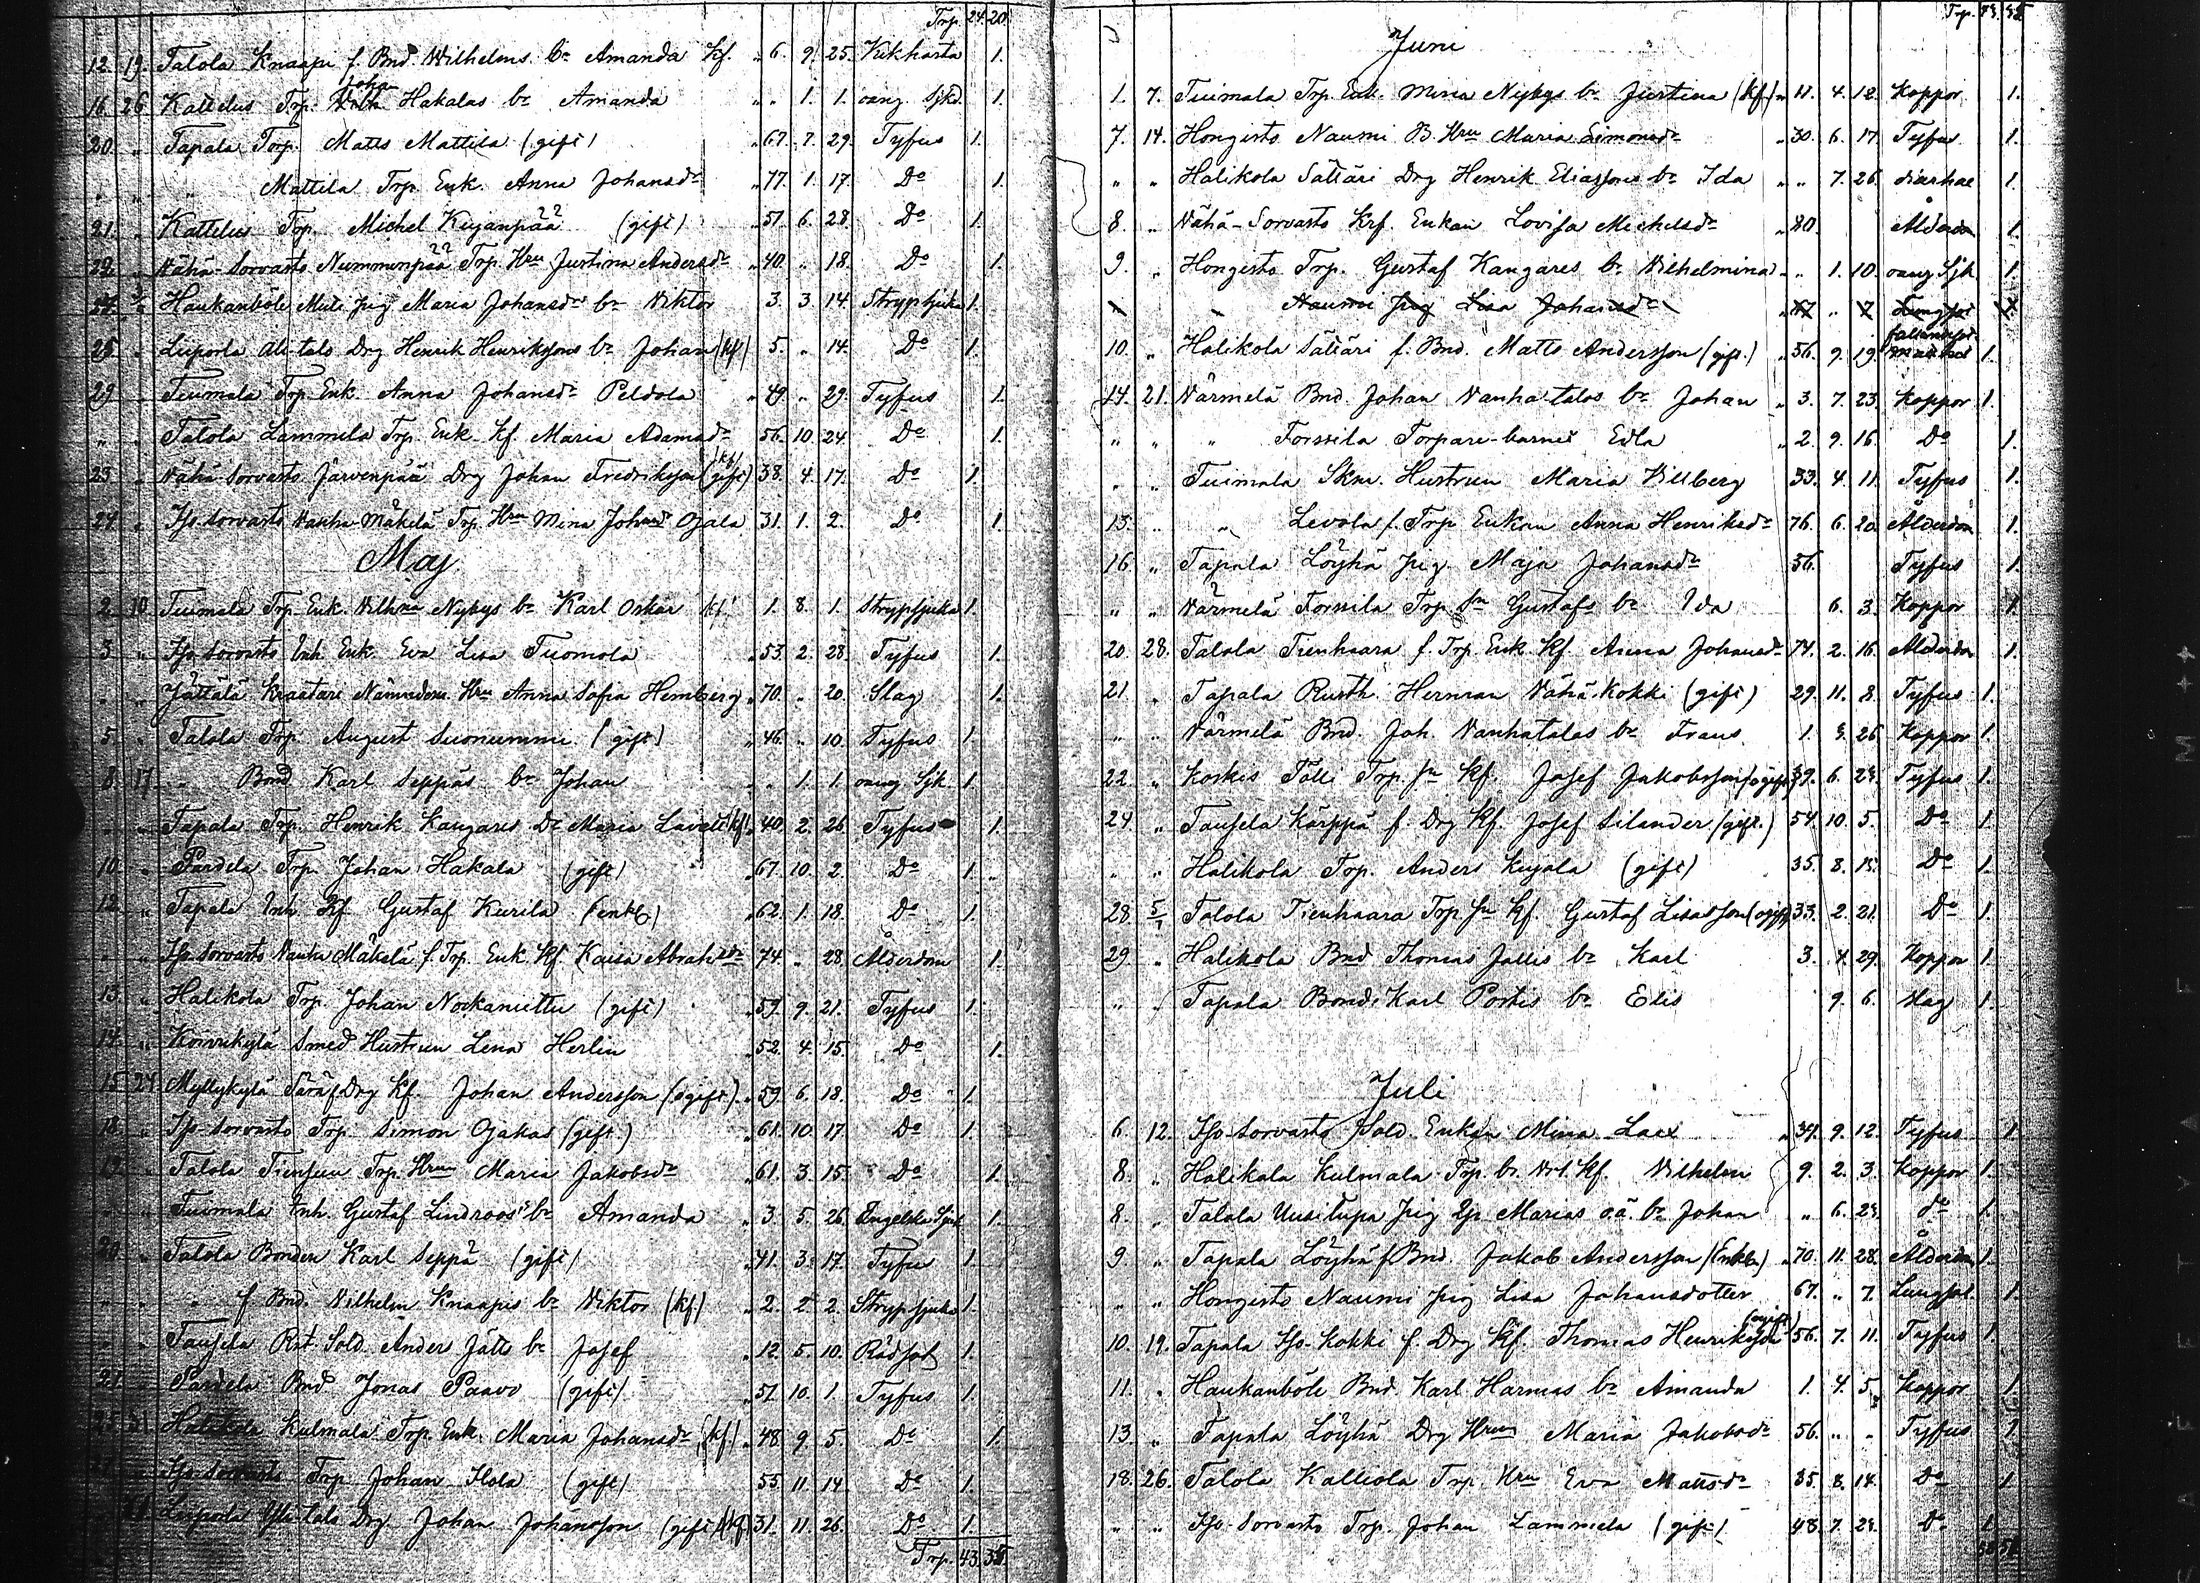 Trp. 24. 20.
12. 19. Talola Knaapi f. Bnd. Wilhelms bn Amanda kf. " 6. 9. 25. Kikhosta 1.
16. 26 Kattelus Trp. Johan Hakalas bn Amanda " " 1. 1. oang. Sjkd. 1.
20. " Tapala Torp. Matts Mattila (gift) " 67. 7. 29. Tyfus 1.
" " " Mattila Trp. Enk. Anna Johansdr " 77. 1. 17. Do 1.
21. " Kattelus Trp. Michel Kujanpää (gift) " 51. 6. 28. Do 1.
22. " Vähä-Sorvasto Nummenpää Trp. Hru Justina Andersdr " 40. " 18. Do 1.
Haukanböle Pig Maria Johansdr bn Viktor 3. 3. 14. Strypsjuka 1.
25. " Liipola Ali-talo Drg Henrik Henrikssons bn Johan (kf) 5. " 14. Do 1.
29. " Tuimala Trp. Enk. Anna Johansdr Peldola " 49. " 29. Tyfus 1.
" " Talola Lammela Trp. Enk. kf. Maria Adamsdr " 56. 10. 24. Do 1.
23 " Vähä-Sorvasto Järvenpää Drg Johan Fredriksson (gift) kf 38. 4. 17. Do 1.
24. " Iso-Sorvasto Vanha-Mäkelä Trp. Hru Mina Johansdr Ojala 31. 1. 2. Do 1.
Maj.
2. 10. Tuimala Trp. Enk. Vilhna Nybys bn Karl Oskar kf 1. 8. 1. Strypsjuka 1.
3. " Iso-Sorvasto Inh. Enk. Eva Lisa Tuomola " 53. 2. 28. Tyfus 1.
" " Jättälä Kraatari Nämndem. Hru Anna Sofia Hemberg " 70. " 20. Slag 1.
5. " Talola Trp. August Suonummi (gift) " 46. " 10. Tyfus 1.
8. 17. " Bond Karl Seppäs bn Johan " " 1. 1. oang Sjk. 1.
" " Tapala Trp. Henrik Kangaris Dr Maria kf. 40. 2. 26. Tyfus 1.
10. " Pardela Trp. Johan Hakala (gift) " 67. 10. 2. Do 1.
12. " Tapala Inh. kf. Gustaf Kurila (enkl) " 62. 1. 18. Do 1.
" " Iso-Sorvasto Vanha Mäkelä f. Trp. Enk. kf. Kaisa Abrahsdr 74. " 28. Ålderdom 1.
13. " Halikola Trp. Johan Nockanittu (gift) " 59. 9. 21. Tyfus 1.
14. " Koivukylä Smed Hustrun Lena Herlin " 52. 4. 15. Do 1.
15. 24. Myllykylä Särä f. Drg kf. Johan Andersson (ogift) " 59. 6. 18. Do 1.
18. " Iso-Sorvasto Trp. Simon Ojakas (gift) " 61. 10. 17. Do 1.
19. " Talola Tiensuu Trp. Hru Maria Jakobsdr " 61. 3. 15. Do 1.
" " Tuimala Inh. Gustaf Lindroos's bn Amanda " 3. 5. 26. Engelska Sjuk. 1.
20. " Talola Bonden Karl Seppä (gift) " 41. 3. 17. Tyfus 1.
" " " f. Bnd. Vilhelm Knaapis bn Viktor (kf) " 2. 2. 2. Strypsjuka 1.
" " Tausela Rst. Sold. Anders Jätts bn Josef " 12. 5. 10. Rödsot 1.
21. " Pardela Bnd Jonas Paavo (gift) " 51. 10. 1. Tyfus 1.
25. 31. Halikola Kulmala Trp. Enk. Maria Johansdr (kf) " 48. 9. 5. Do 1.
Iso-Sorvasto Trp. Johan Ilola (gift) 55. 11. 14. Do 1.
Liipola Yli-talo Drg Johan Johansson (gift) 31. 11. 26. Do 1.
Trp. 43. 35.
Trp. 43. 35.
Juni
1. 7. Tuimala Trp. Enk. Mina Nybys bn Justina (kf) " 11. 4. 12. Koppor 1.
7. 14. Hongisto Naumi B. Hru Maria Simonsdr " 30. 6. 17. Tyfus 1.
" " Halikola Sätäri Drg Henrik Eliassons bn Ida " " 7. 26. diarhae 1.
8. " Vähä-Sorvasto Krf. Enkan Lovisa Michelsdr " 80. Ålderdom 1.
9. " Hongisto Trp. Gustaf Kangares bn Vilhelmina " " 1. 10. oang Sjk. 1.
" Naumi Pig Lisa Johansdr " 67 " 7 Lungsot 1.
10. " Halikola Sätäri f. Bnd. Matts Andersson (gift) " 56. 9. 19. 1.
14. 21. Värmelä Bnd. Johan Vanhatalos bn Johan " 3. 7. 23. Koppor 1.
" " " Forssila Torpare-barnet Edla " 2. 9. 16. Do 1.
" " Tuimala Skm. Hustrun Maria Villberg 33. 4. 11. Tyfus 1.
15. " " Levola f. Trp. Enkan Anna Henriksdr 76. 6. 20. Ålderdom 1.
16. " Tapala Löyhä Pig. Maja Johansdr 56. Tyfus 1.
" " Värmelä Forssila Trp. Sn Gustafs bn Ida 6. 3. Koppor 1.
20. 28. Talola Tienhaara f. Trp. Enk. kf. Anna Johansdr 74. 2. 16. Ålderdom 1.
21. " Tapala Rusth. Herman Vähä-Kokki (gift) 29. 11. 8. Tyfus 1.
" " Värmelä Bnd. Joh. Vanhatalos bn Frans 1. 3. 26. Koppor 1.
22. " Koskis Tolli Trp. Sn kf. Josef Jakobsson (ogift) 39. 6. 23. Tyfus 1.
24. " Tausela Kärppä f. Drg kf. Josef Silander (gift.) 54. 10. 5. Do 1.
" " Halikola Trp. Anders Kujala (gift) 35. 8. 13. Do 1.
28. 5/7 Talola Tienhaara Trp. Sn kf. Gustaf Lisasson (ogift) 33. 2. 21. Do 1.
29. " Halikola Bnd Thomas Jallis bn Karl 3. 4. 29. Koppor 1.
" " Tapala Bonds Karl Postis bn Elis 9. 6. slag 1.
Juli
6. 12. Iso-Sorvasto Sold. Enkan Mina Lax " 34. 9. 12. Tyfus 1.
8. " Halikala Kulmala Trp. bn kf. Vilhelm 9. 2. 3. Koppor 1.
8. " Talola Uusitupa Pig Marias o.ä. bn Johan " 6. 23. do 1.
9 " Tapala Löyhä f. Bnd. Jakob Andersson (Enkl) " 70. 11. 28. Ålderdom 1.
" " Hongisto Naumi Pig Lisa Johansdotter 67. " 7. Lungsot 1.
10. 19. Tapala Iso-Kokki f. Drg kf. Thomas Henriksson (ogift) 56. 7. 11. Tyfus 1.
11. " Haukanböle Bnd. Karl Harmas bn Amanda 1. 4. 5. Koppor 1.
13. " Tapala Löyhä Drg Hru Maria Jakobsdr 56. " " Tyfus 1.
18. 26. Talola Kalliola Trp. Hru Eva Mattsdr 35. 8. 14. Do 1.
" " Iso-Sorvasto Trp. Johan Lammela (gift) 48. 7. 23. Do 1.